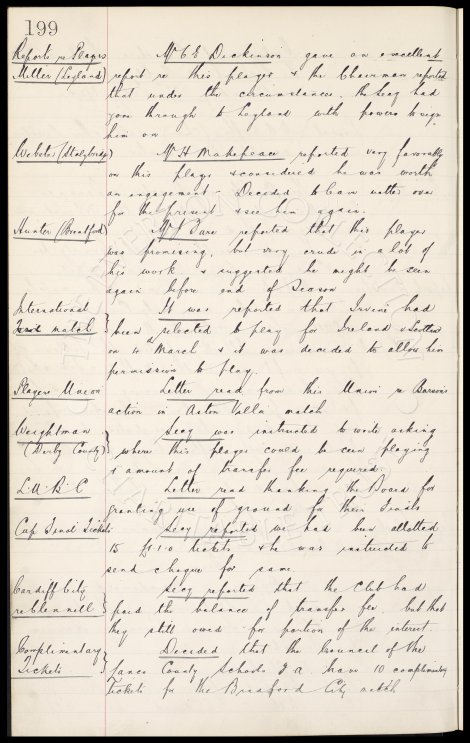 199
Reports re Players Mr C E Dickinson gave an excellent
Miller (Leyland) report re this player & the Chairman reported
that under the circumstances, the Secy had
gone through to Leyland with powers to sign
him on
Webster (Stalybridge) Mr H Makepeace reported very favorably
on this player & considered he was worth
an engagement - Decided to leave matter over
for the present & see him again.
Hunter (Brentford) Mr J Sare reported that this player
was promising, but very crude in a lot of
his work & suggested he might be seen
again before end of Season
International It was reported that Irvine had
match been selected to play for Ireland v Scotland
on 4 March & it was decided to allow him
permission to play.
Players Union Letter read from this Union re
action in Aston Villa match
Weightman Secy was instructed to write asking
(Derby County) where this player could be seen playing
& amount of transfer fee required.
L.U.B.C Letter read thanking the Board for
granting use of ground for their Finals
Cup Final Tickets Secy reported we had been allotted
15 £1.1.0 tickets & he was instructed to
send cheque for same
Cardiff City Secy reported that the Club had
re Blennell paid the balance of transfer fee but that
they still owed for portion of the interest
Complimentary Decided that the Council of the
Tickets Lancs County Schools F.A. have 10 complimentary
tickets for the Bradford City match